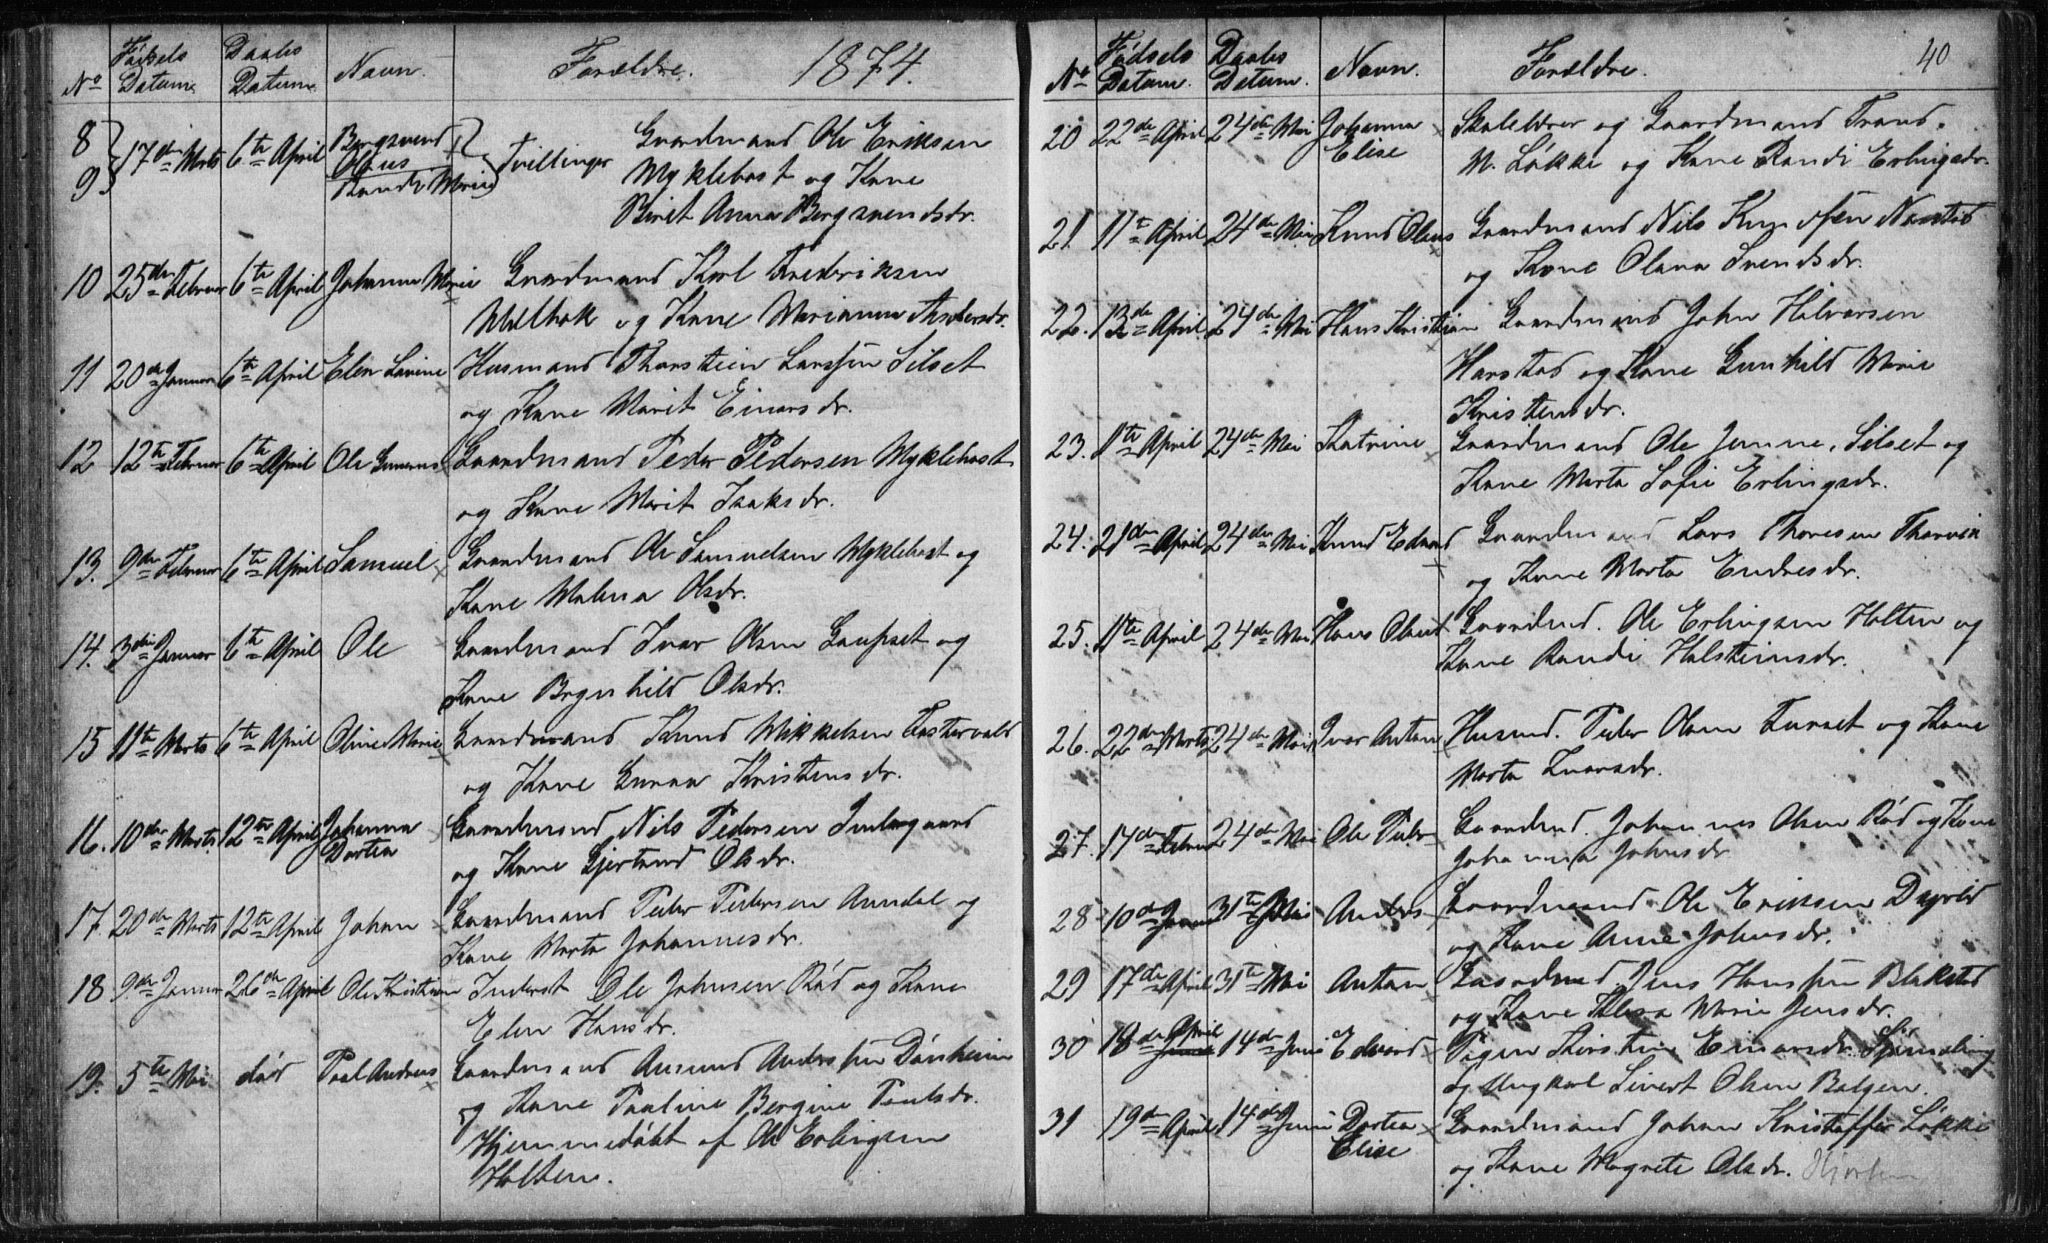 No Fødsels Datum. Daabs Datum. Navn. Forældre. 1874.
8 9 17de Marts 6te April Bergsvend Olaus Randi Marie Tvillinger Gaardmand Ole Eriksen
Myklebost og Kone
Berit Anna Bergsvendsdr.
10 25de Februar 6te April Johanna Marie Gaardmand Karl Frederiksen
og Kone Marianna
11 20de Januar 6te April Elen Lavine Husmand Thorstein Larssen Silset
og Kone Marit Einarsdr.
12 12te Februar 6te April Ole Gaardmand Peder Pedersen Myklebost
og Kone Marit Isaksdr.
13. 9de Februar 6te April Samuel Gaardmand Ole Samuelsen Myklebost og
Kone Malena Olsdr.
14. 3die Januar 6te April Ole Gaardmand Ivar Olsen Gaupset og
Kone Brynhild Olsdr.
15 11te Marts 6te April Oline Marie Gaardmand Knud Mikkelsen Fostervold
og Kone Gunna Kristensdr.
16. 10de Marts 12te April Johanna Dortea Gaardmand Nils Pedersen
og Kone Gjertrud Olsdr.
17. 20de Marts 12te April Johan Gaardmand Peder Pedersen og
Kone Marta Johannesdr.
18 9de Januar 26de April Ole Kristian Inderst Ole Johnsen Rød og Kone
Elen Hansdr.
19. 5te Mai død Paal Andreas Gaardmand Amund Anderssen
og Kone Pauline Bergine Paulsdr.
Hjemmedøbt af Ole Erlingsen
Holten.
40
No Fødsels Datum. Daabs Datum. Navn. Forældre.
20 22de April 24de Mai Johanna Elise Skolelærer og Gaardmand Trond
M. Løkke og Kone Randi Erlingsdr.
21. 11te April 24de Mai Knud Olaus Gaardmand Nils Knudsen
og Kone Olava Svendsdr.
22. 13de April 24de Mai Hans Kristian Gaardmand John Halvorsen
Harstad og Kone Gunhild Marie
Kristensdr.
23. 11te April 24de Mai Katrine Gaardmand Ole Silset og
Kone Marta Sofie Erlingsdr.
24. 21de April 24de Mai Knud Edvard Gaardmand Lars Thoresen
og Kone Marta Endresdr.
25. 11te April 24de Mai Hans Olaus Gaardmd. Ole Erlingsen Holten og
Kone Randi Halsteinsdr.
26. 22de Marts 24de Mai Ivar Anton Husmd. Peder Olsen og Kone
Marta Ivarsdr.
27. 17de Februar 24de Mai Ole Peder Gaardmd. Johannes Olsen Rød og Kone
Johanna Johnsdr
28 10de 31te Mai Anders Gaardmand Ole Eriksen
og Kone Anne Johnsdr.
29 17de April 31te Mai Anton Gaardmd. Jens Hanssen Blakstad
og Kone Marie Jensdr.
30 18de April 14de Juni Edvard Pigen Kirsten Einarsdr.
og Ungkarl Sivert Olsen Bolgen.
31 19de April 14de Juni Dortea Elise Gaardmand Johan Kristoffer Løkke
og Kone Magrete Olsdr.